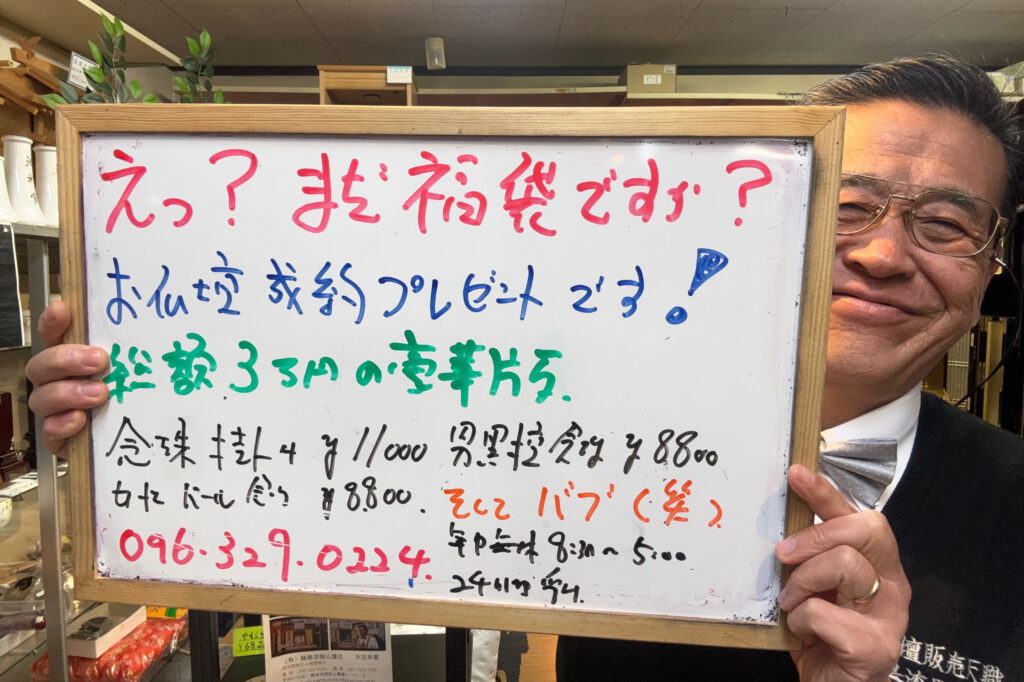 えっ？まだ福袋ですか？
お仏壇成約プレゼントです！
総額3万円の豪華片方.
念珠掛け ¥11000 男黒檀念珠 ¥8800
女性パール念珠 ¥8800.
そしてバブ（笑）.
096.329.0224.
年中無休 8:30〜5:00
24時間受付.
壇販売天職